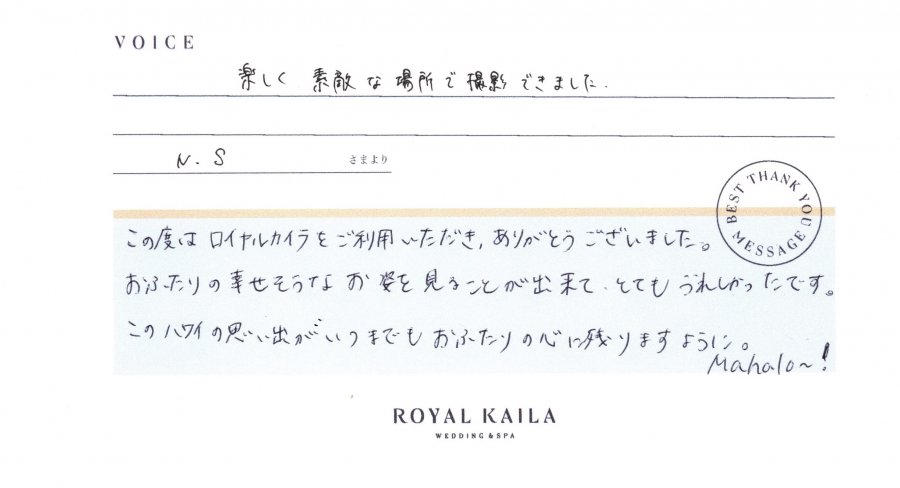 VOICE
楽しく 素敵な場所で撮影できました.
N.S さまより
BEST THANK YOU MESSAGE
この度はロイヤルカイラをご利用いただき、ありがとうございました。
おふたりの幸せそうなお姿を見ることが出来て、とてもうれしかったです。
このハワイの思い出がいつまでもおふたりの心に残りますように。
Mahalo~!
ROYAL KAILA
WEDDING & SPA